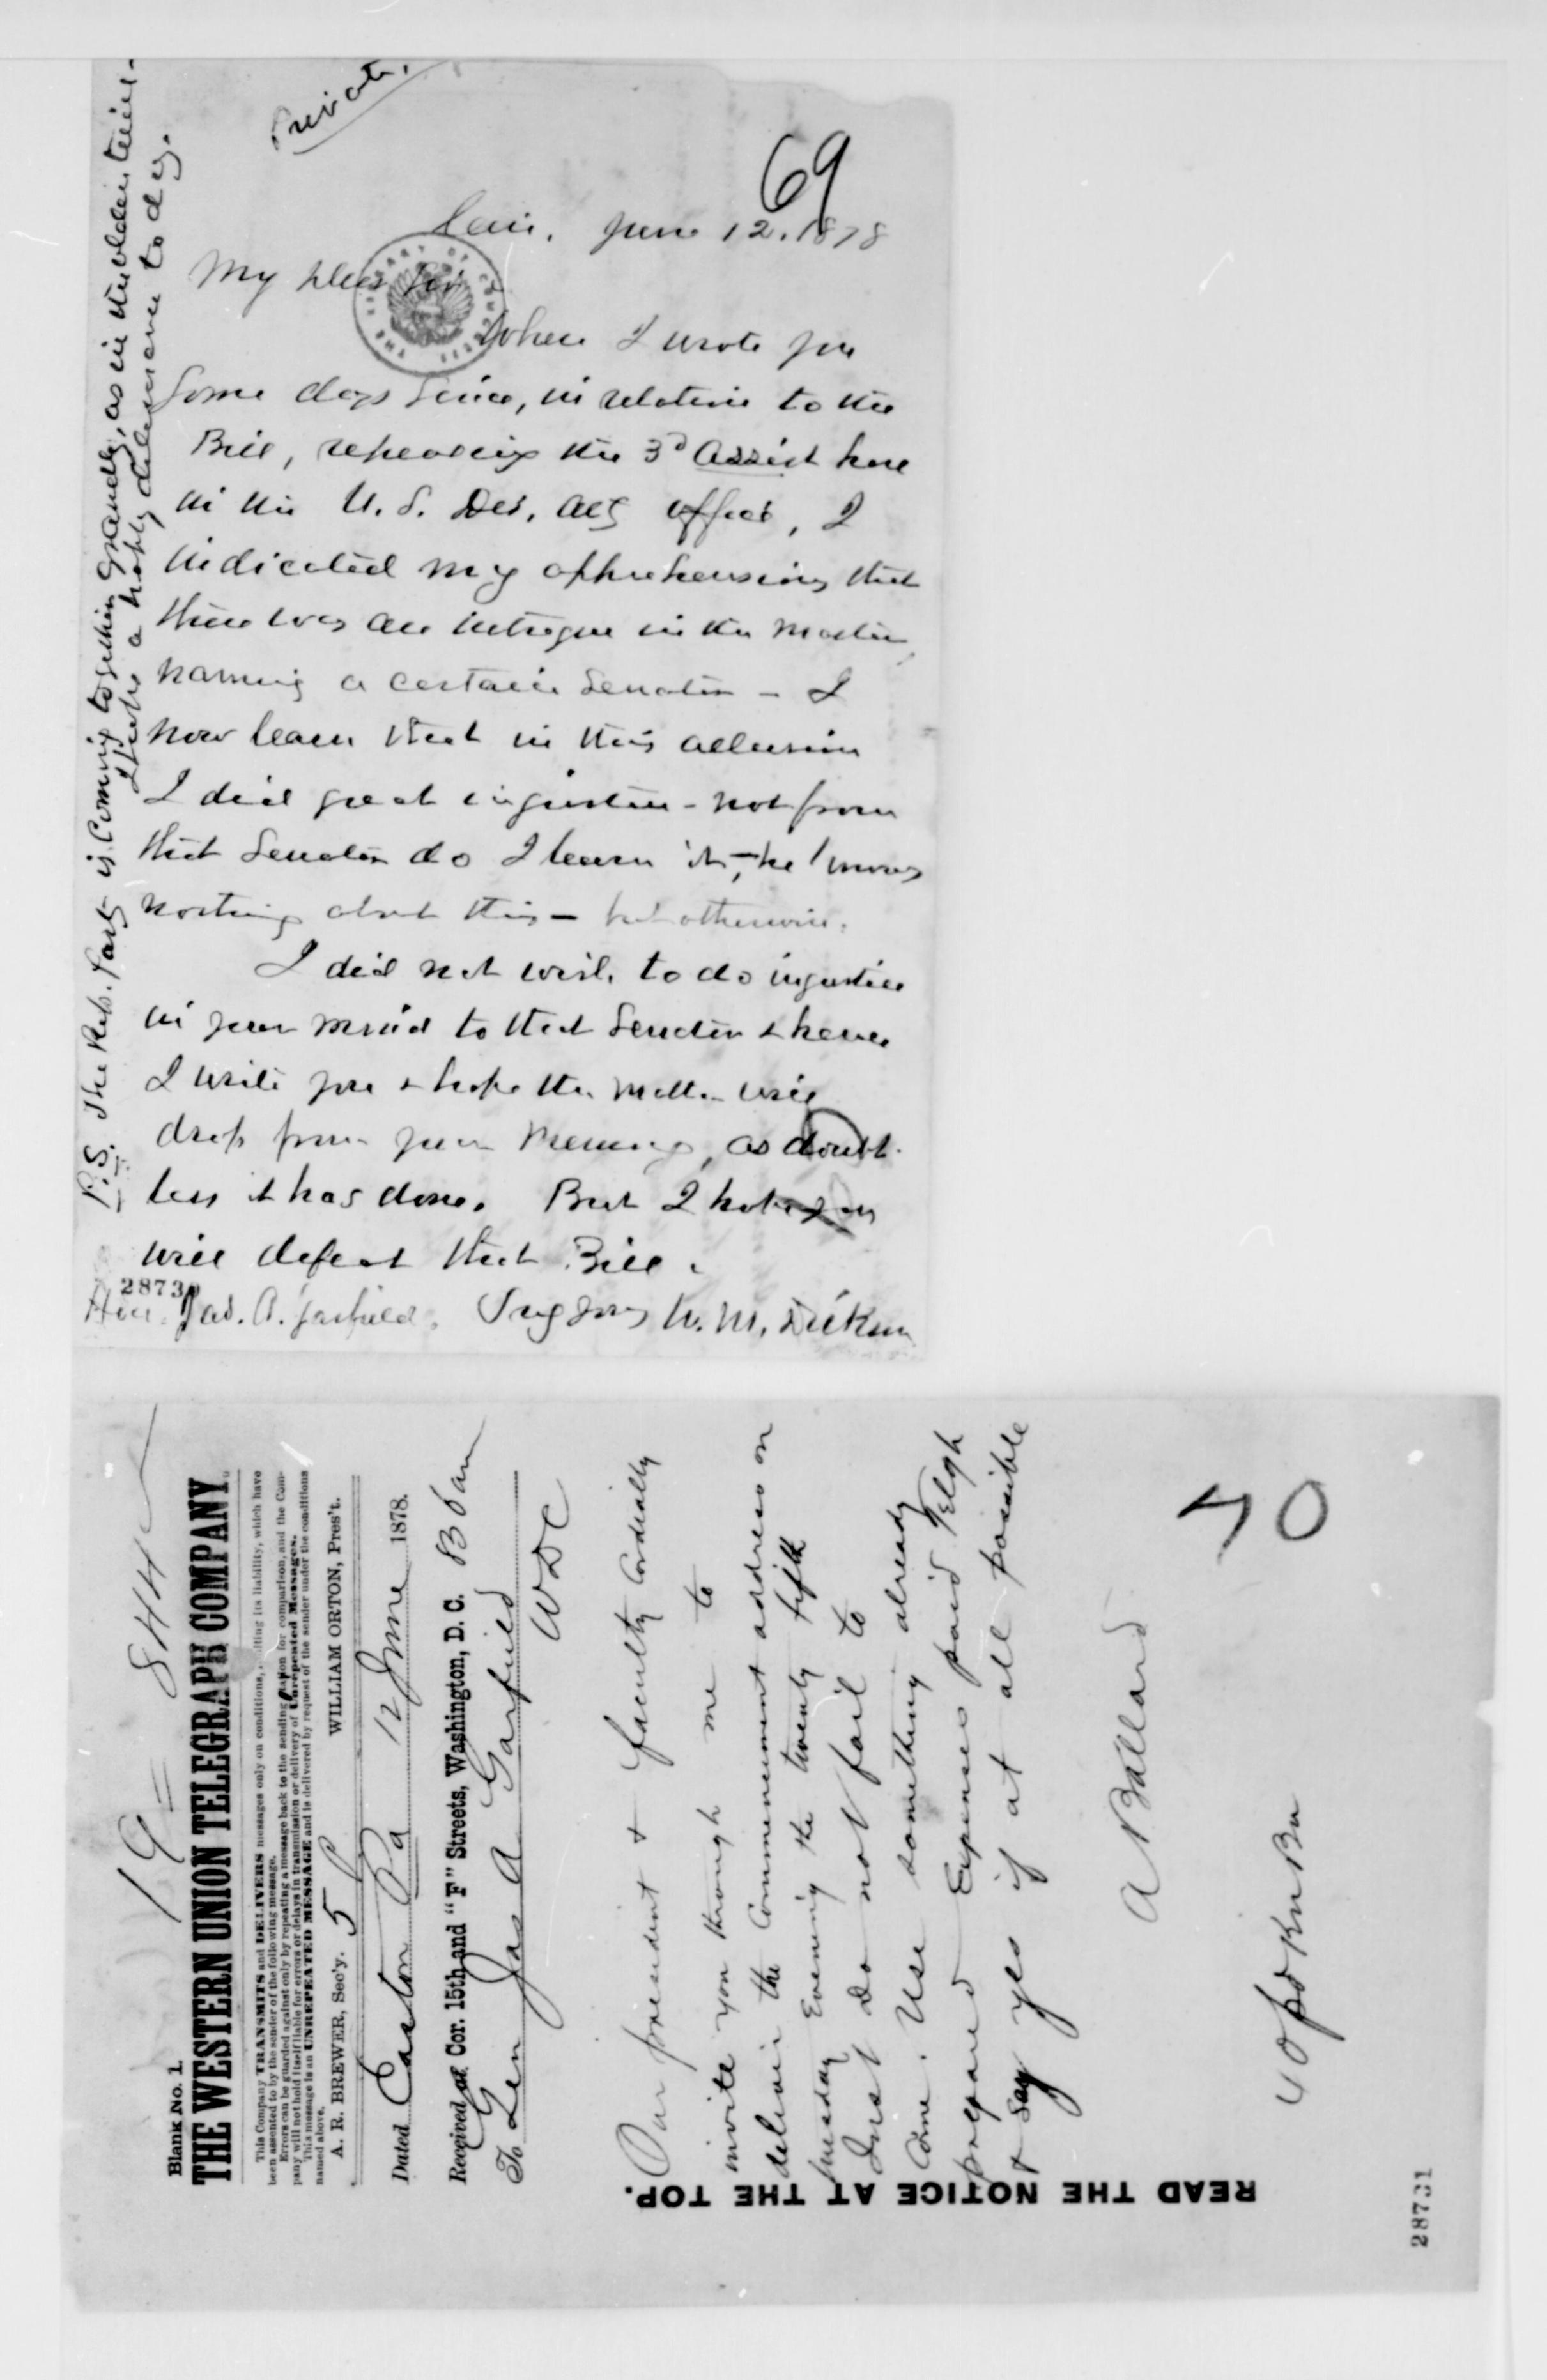 Private.
69
Cin. June 12. 1878
My Dear Sir
When I wrote you
some days since, in relation to the
Bill, repealing the 3d Assist here
in the U. S. Dis. Atty office, I
indicated my apprehensions that
there was an intrigue in the matter,
naming a certain Senator - I
now learn that in this allusion
I did great injustice - not from
that Senator do I learn it, - he knows
nothing about this - but otherwise.
I did not wish to do injustice
in your mind to that Senator & hence
I write you & hope the matter will
drop from your memory, as doubt-
less it has done. But I hope you
will defeat that Bill.
Hon. Jas. A. Garfield. Truly Yours W. M. Dickson
28730
P.S. The Rep. Party is coming together grandly, as in the olden time -
a noble deliverance to day.
THE LIBRARY OF CONGRESS
19 = 844
Blank No. 1.
THE WESTERN UNION TELEGRAPH COMPANY.
This Company TRANSMITS and DELIVERS messages only on conditions, limiting its liability, which have
been assented to by the sender of the following message.
Errors can be guarded against only by repeating a message back to the sending station for comparison, and the Com-
pany will not hold itself liable for errors or delays in transmission or delivery of Unrepeated Messages.
This message is an UNREPEATED MESSAGE and is delivered by request of the sender under the conditions
named above.
A. R. BREWER, Sec'y. 5 WILLIAM ORTON, Pres't.
Dated Easton Pa 12 June 1878.
Received at Cor. 15th and "F" Streets, Washington, D. C. 836 am
To Gen Jas A Garfield
WDC
Our president & faculty cordially
invite you through me to
deliver the Commencement address on
tuesday Evening the twenty fifth
Inst Do not fail to
Come. Use something already
prepared Expenses paid Telgh
& say yes if at all possible
A Ballard
40 pd Kn Bu
70
READ THE NOTICE AT THE TOP.
28731